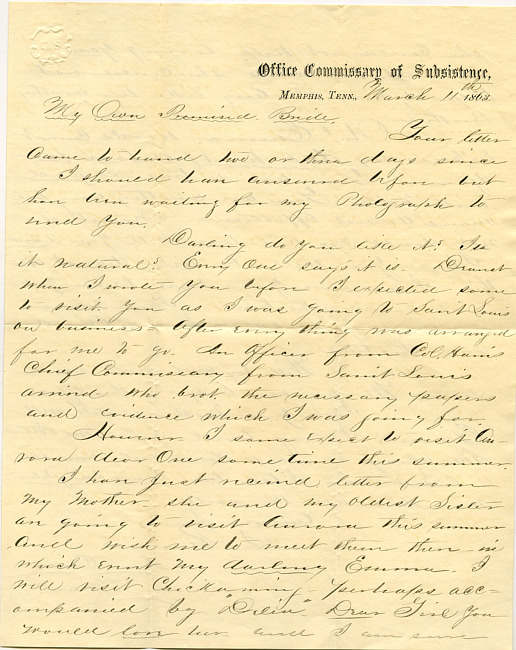 Office Commissary of Subsistence,
Memphis, Tenn., March 11th 1863.
My Own Promised Bride,
Your letter
came to hand two or three days since
I should have answered before but
have been waiting for my Photograph to
send you.
Darling do you like it? Is
it natural? Every One says it is. Dearest
when I wrote you before I expected some
to visit you as I was going to Saint Louis
on business – After every thing was arranged
for me to go. An Officer from Col. Hains
Chief Commissary from Saint Louis
arrived who brot the necessary papers
and evidence which I was going for.
However I some expect to visit Au-
rora dear One some time this summer.
I have just received letter from
my Mother – she and my oldest Sister
are going to visit Aurora this summer
and wish me to meet them there – in
which event my darling Emma. I
will visit Chickaming – perhaps acc-
ompanied by "Delia" Dear Girl you
would love her – and I am sure